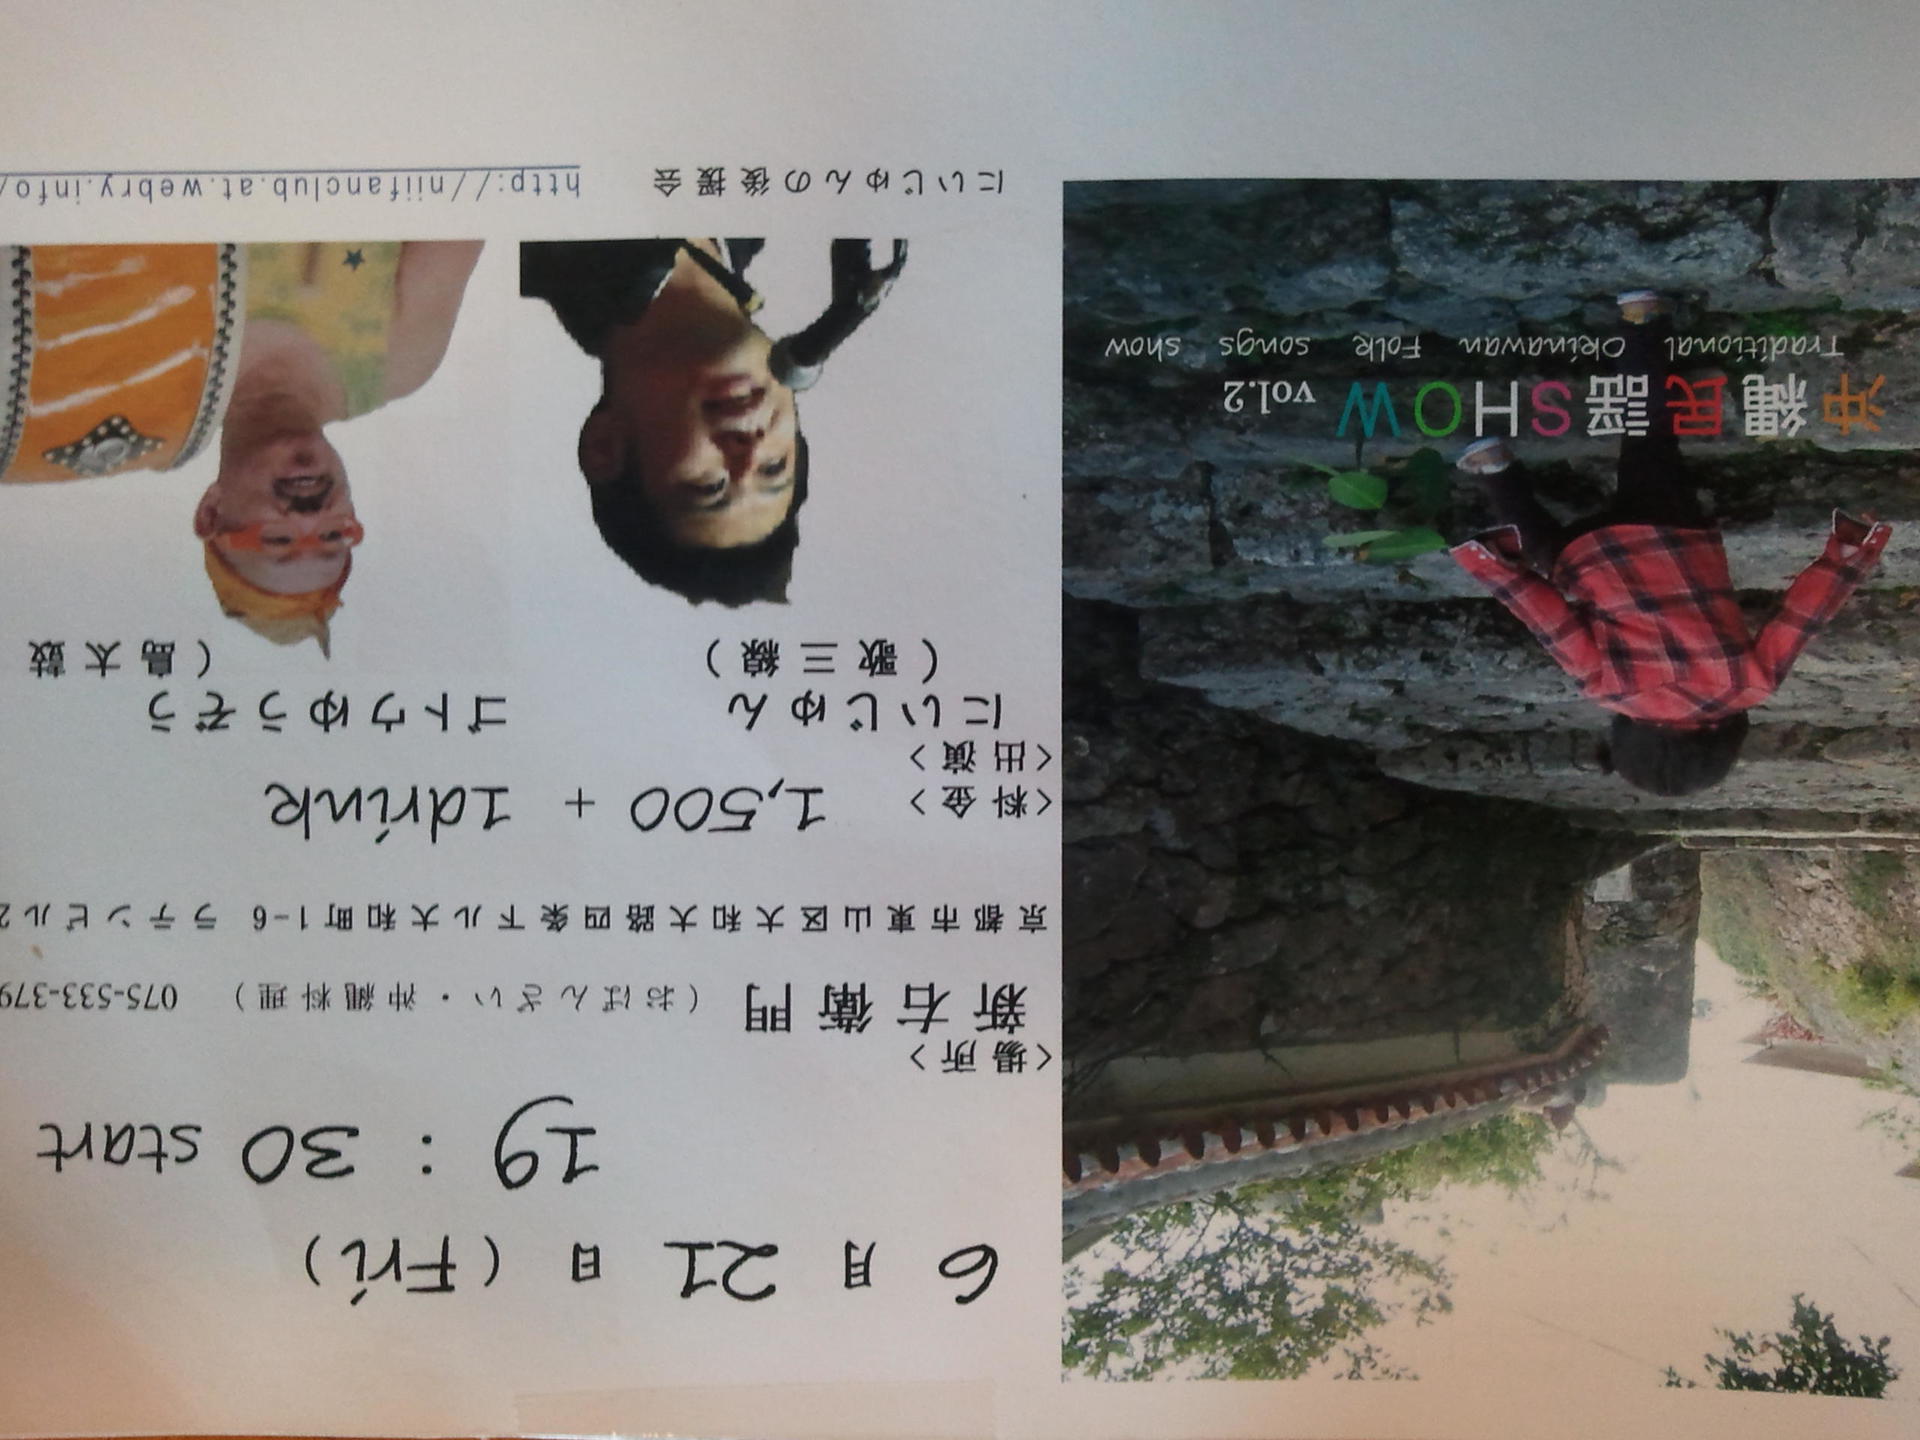 沖縄民謡SHOW vol.2
Traditional Okinawan Folk songs show
6月21日(Fri)
19:30 start
<場所>
新右衛門 (おばんざい・沖縄料理) 075-533-379
京都市東山区大和大路四条下ル大和町1-6 ラテンビル2
<料金> 1,500 + 1drink
<出演>
にいじゅん ゴトウゆうぞう
(歌三線) (島太鼓
にいじゅんの後援会 http://niifanclub.at.webry.info/